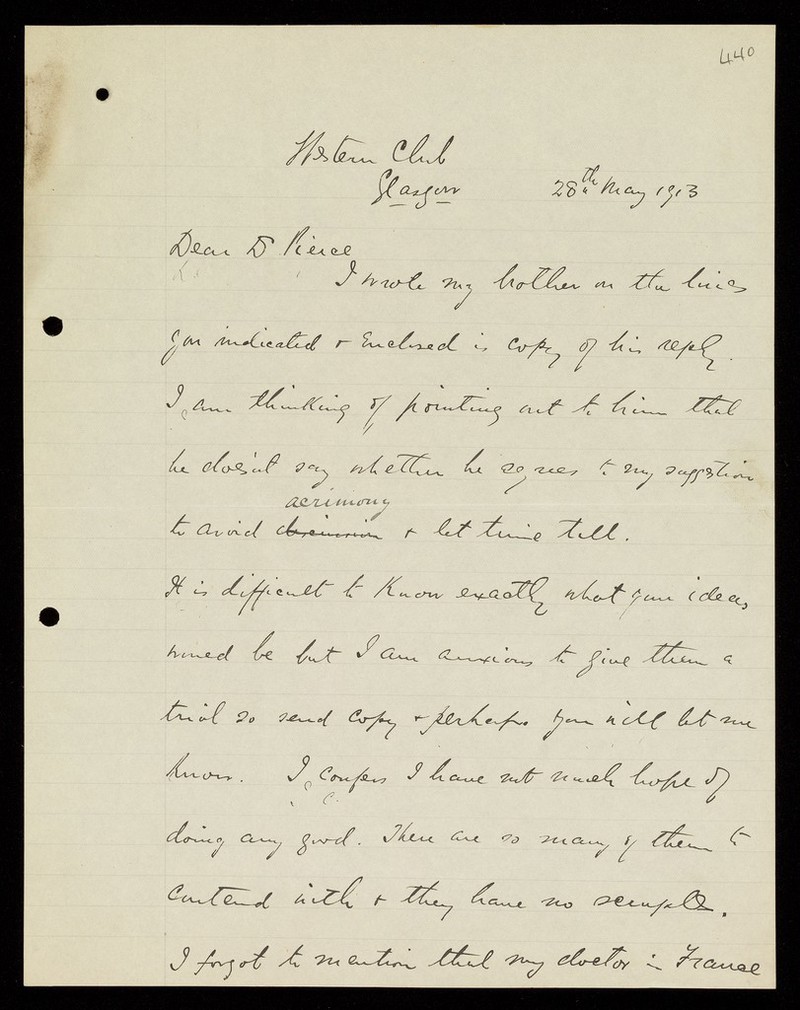 440
Western Club
Glasgow 28th May 1913
Dear Dr Pierce
I wrote my brother on the lines
you indicated & enclosed is copy of his reply.
I am thinking of pointing out to him that
he doesn't say whether he agrees to my suggestion
acrimony
to avoid & let time tell.
It is difficult to know exactly what your ideas
would be but I am anxious to give them a
trial so send copy & perhaps you will let me
know. I confess I have not much hope of
doing any good. There are so many of them to
contend with & they have no scruples.
I forgot to mention that my doctor in France